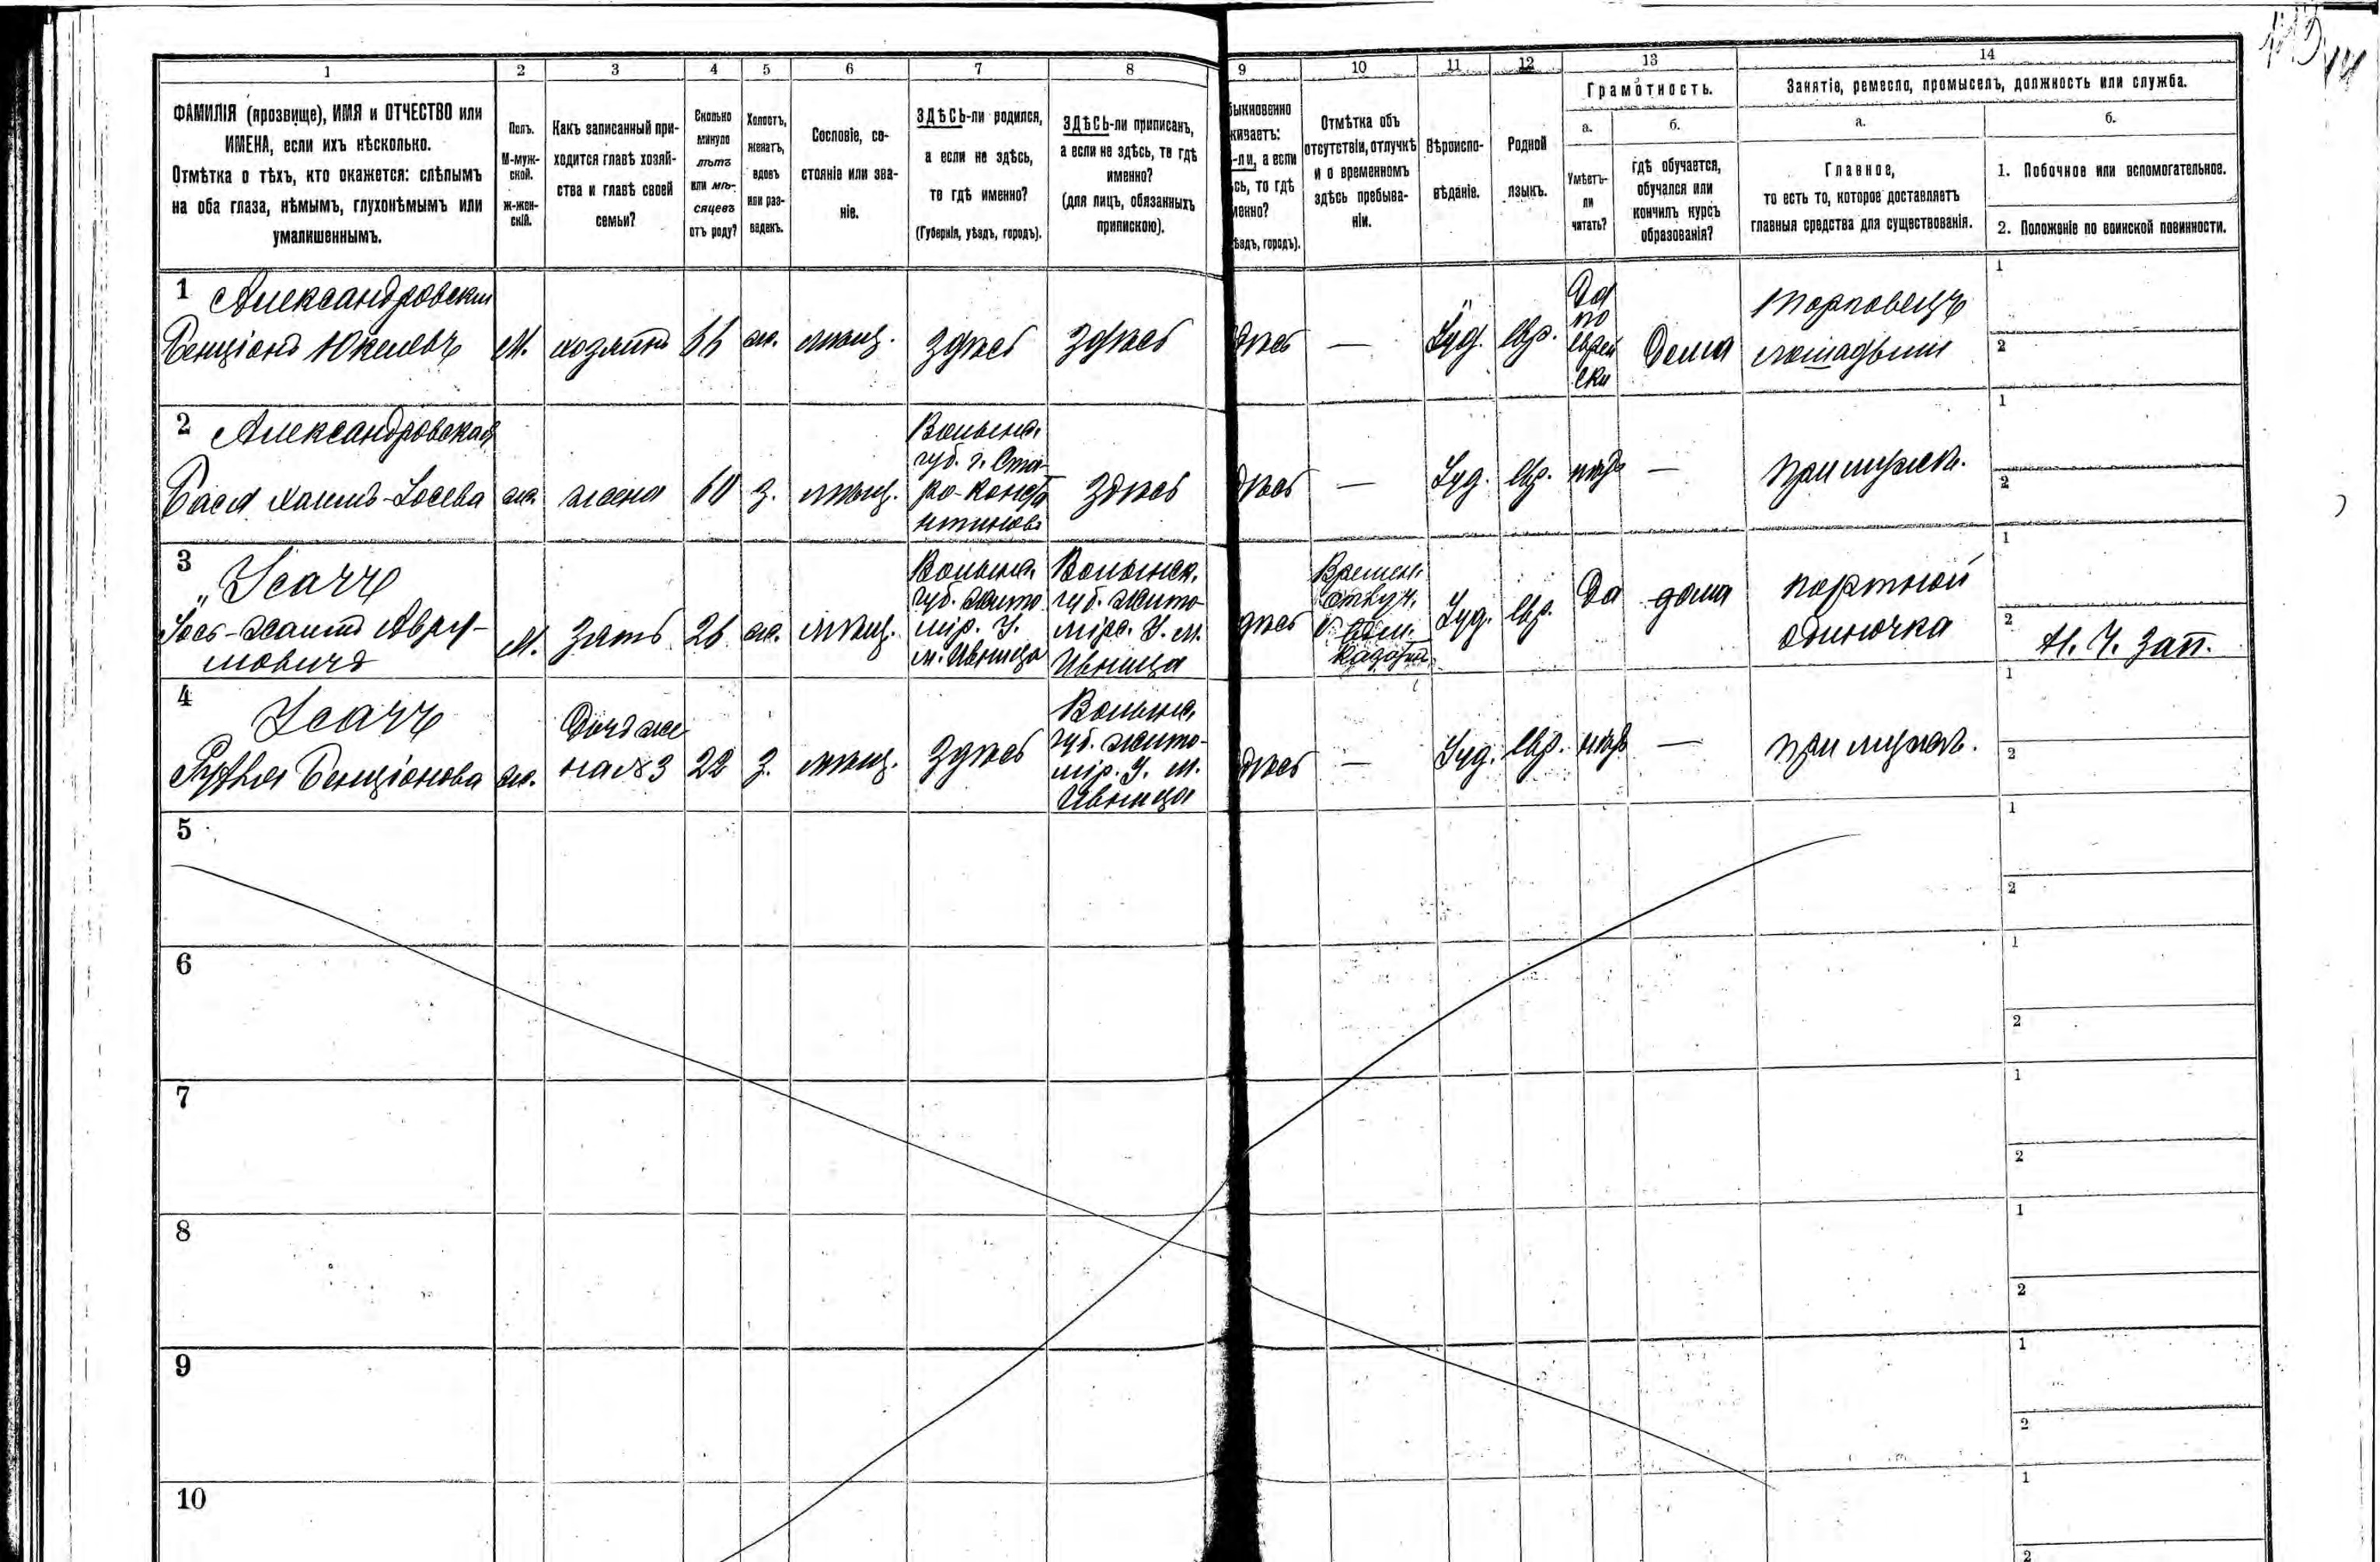 1
2
3
4
5
6
7
8
9
10
11
12
13
14
ФАМИЛІЯ (прозвище), ИМЯ и ОТЧЕСТВО или
ИМЕНА, если ихъ нѣсколько.
Отмѣтка о тѣхъ, кто окажется: слѣпымъ
на оба глаза, нѣмымъ, глухонѣмымъ или
умалишеннымъ.
Полъ.
М-муж-
ской.
Ж-жен-
скій.
Какъ записанный при-
ходится главѣ хозяй-
ства и главѣ своей
семьи?
Сколько
минуло
лѣтъ
или мѣ-
сяцевъ
отъ роду?
Холостъ,
женатъ,
вдовъ
или раз-
веденъ.
Сословіе, со-
стояніе или зва-
ніе.
ЗДѢСЬ-ли родился,
а если не здѣсь,
то гдѣ именно?
(Губернія, уѣздъ, городъ).
ЗДѢСЬ-ли приписанъ,
а если не здѣсь, то гдѣ
именно?
(для лицъ, обязанныхъ
припискою).
быкновенно
живаетъ:
-ли, а если
сь, то гдѣ
менно?
ѣздъ, городъ).
Отмѣтка объ
отсутствіи, отлучкѣ
и о временномъ
здѣсь пребыва-
ніи.
Вѣроиспо-
вѣданіе.
Родной
языкъ.
Грамотность.
а.
Умѣетъ-
ли
читать?
б.
гдѣ обучается,
обучался или
кончилъ курсъ
образованія?
Занятіе, ремесло, промыселъ, должность или служба.
а.
Главное,
то есть то, которое доставляетъ
главныя средства для существованія.
б.
1. Побочное или вспомогательное.
2. Положеніе по воинской повинности.
1 Александровскій
Бенціонъ Юкелевъ М. хозяинъ ж. мѣщ. здѣсь здѣсь дѣсь — Іуд. евр. Да по еврей ски Дома Торговецъ лошадьми
1
2
2 Александровская
Бася Хаимъ-Іосева ж. жена 60 з. мѣщ. Волынс. губ. г. Ста-ро-Конста нтиновъ здѣсь дѣсь — Іуд. евр. нѣтъ — при мужѣ.
1
2
3 Усачъ
Іось-Хаимъ Аврумовичъ М. зять 26 ж. мѣщ. Волынс. губ. Жито мір. У. м. Ивница Волынск. губ. Жито мірс. У. м. Ивница дѣсь Времен. отлуч. Іуд. евр. Да дома портной одиночка
1
2 Н. Ч. зап.
4 Усачъ
Бенціонова ж. Дочь же на №3 22 з. мѣщ. здѣсь Волынс. губ. Жито-мір. У. м. Ивница дѣсь — Іуд. евр. нѣтъ — при мужѣ.
1
2
5
1
2
6
1
2
7
1
2
8
1
2
9
1
2
10
1
2